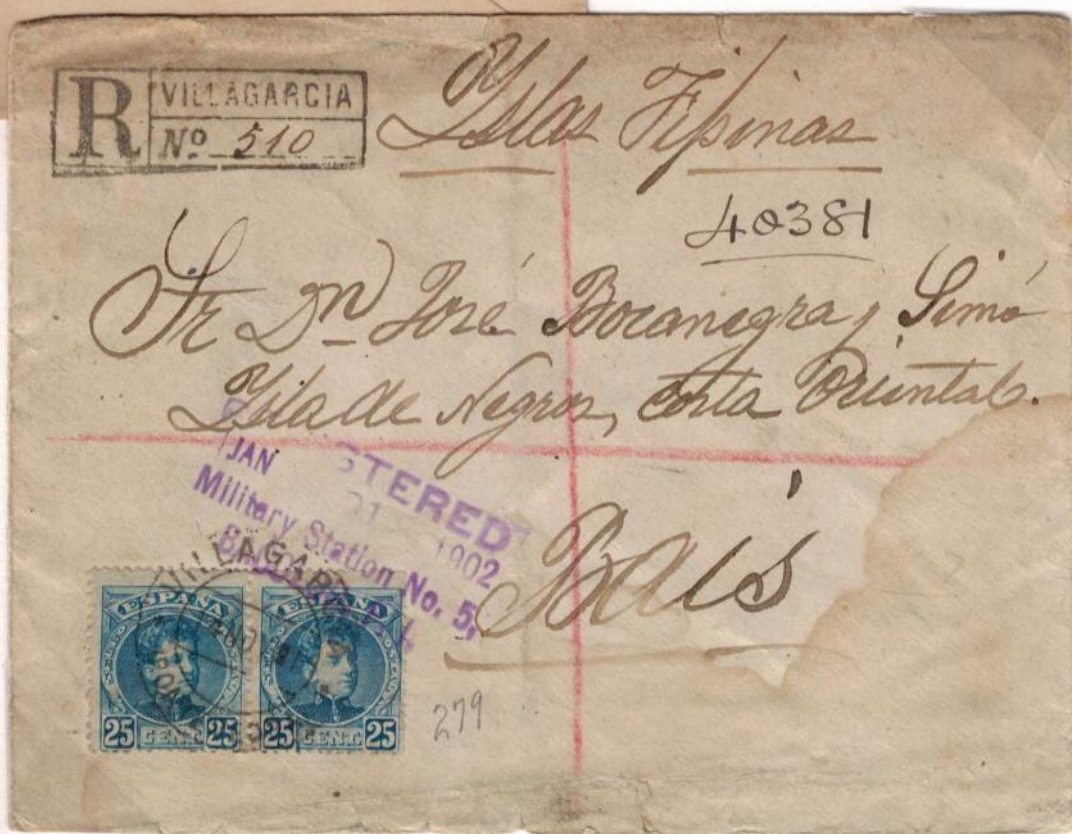 R VILLAGARCIA
Nº 510
Yslas Fipinas
40381
Sr Dn José Bocanegra y Simó
Ysla de Negros, Costa Oriental.
Bais
STERED
JAN 21 1902
Military Station No. 5,
VILLAGAR
ESPAÑA ESPAÑA
25 CENT. 25 25 CENT. 25
279